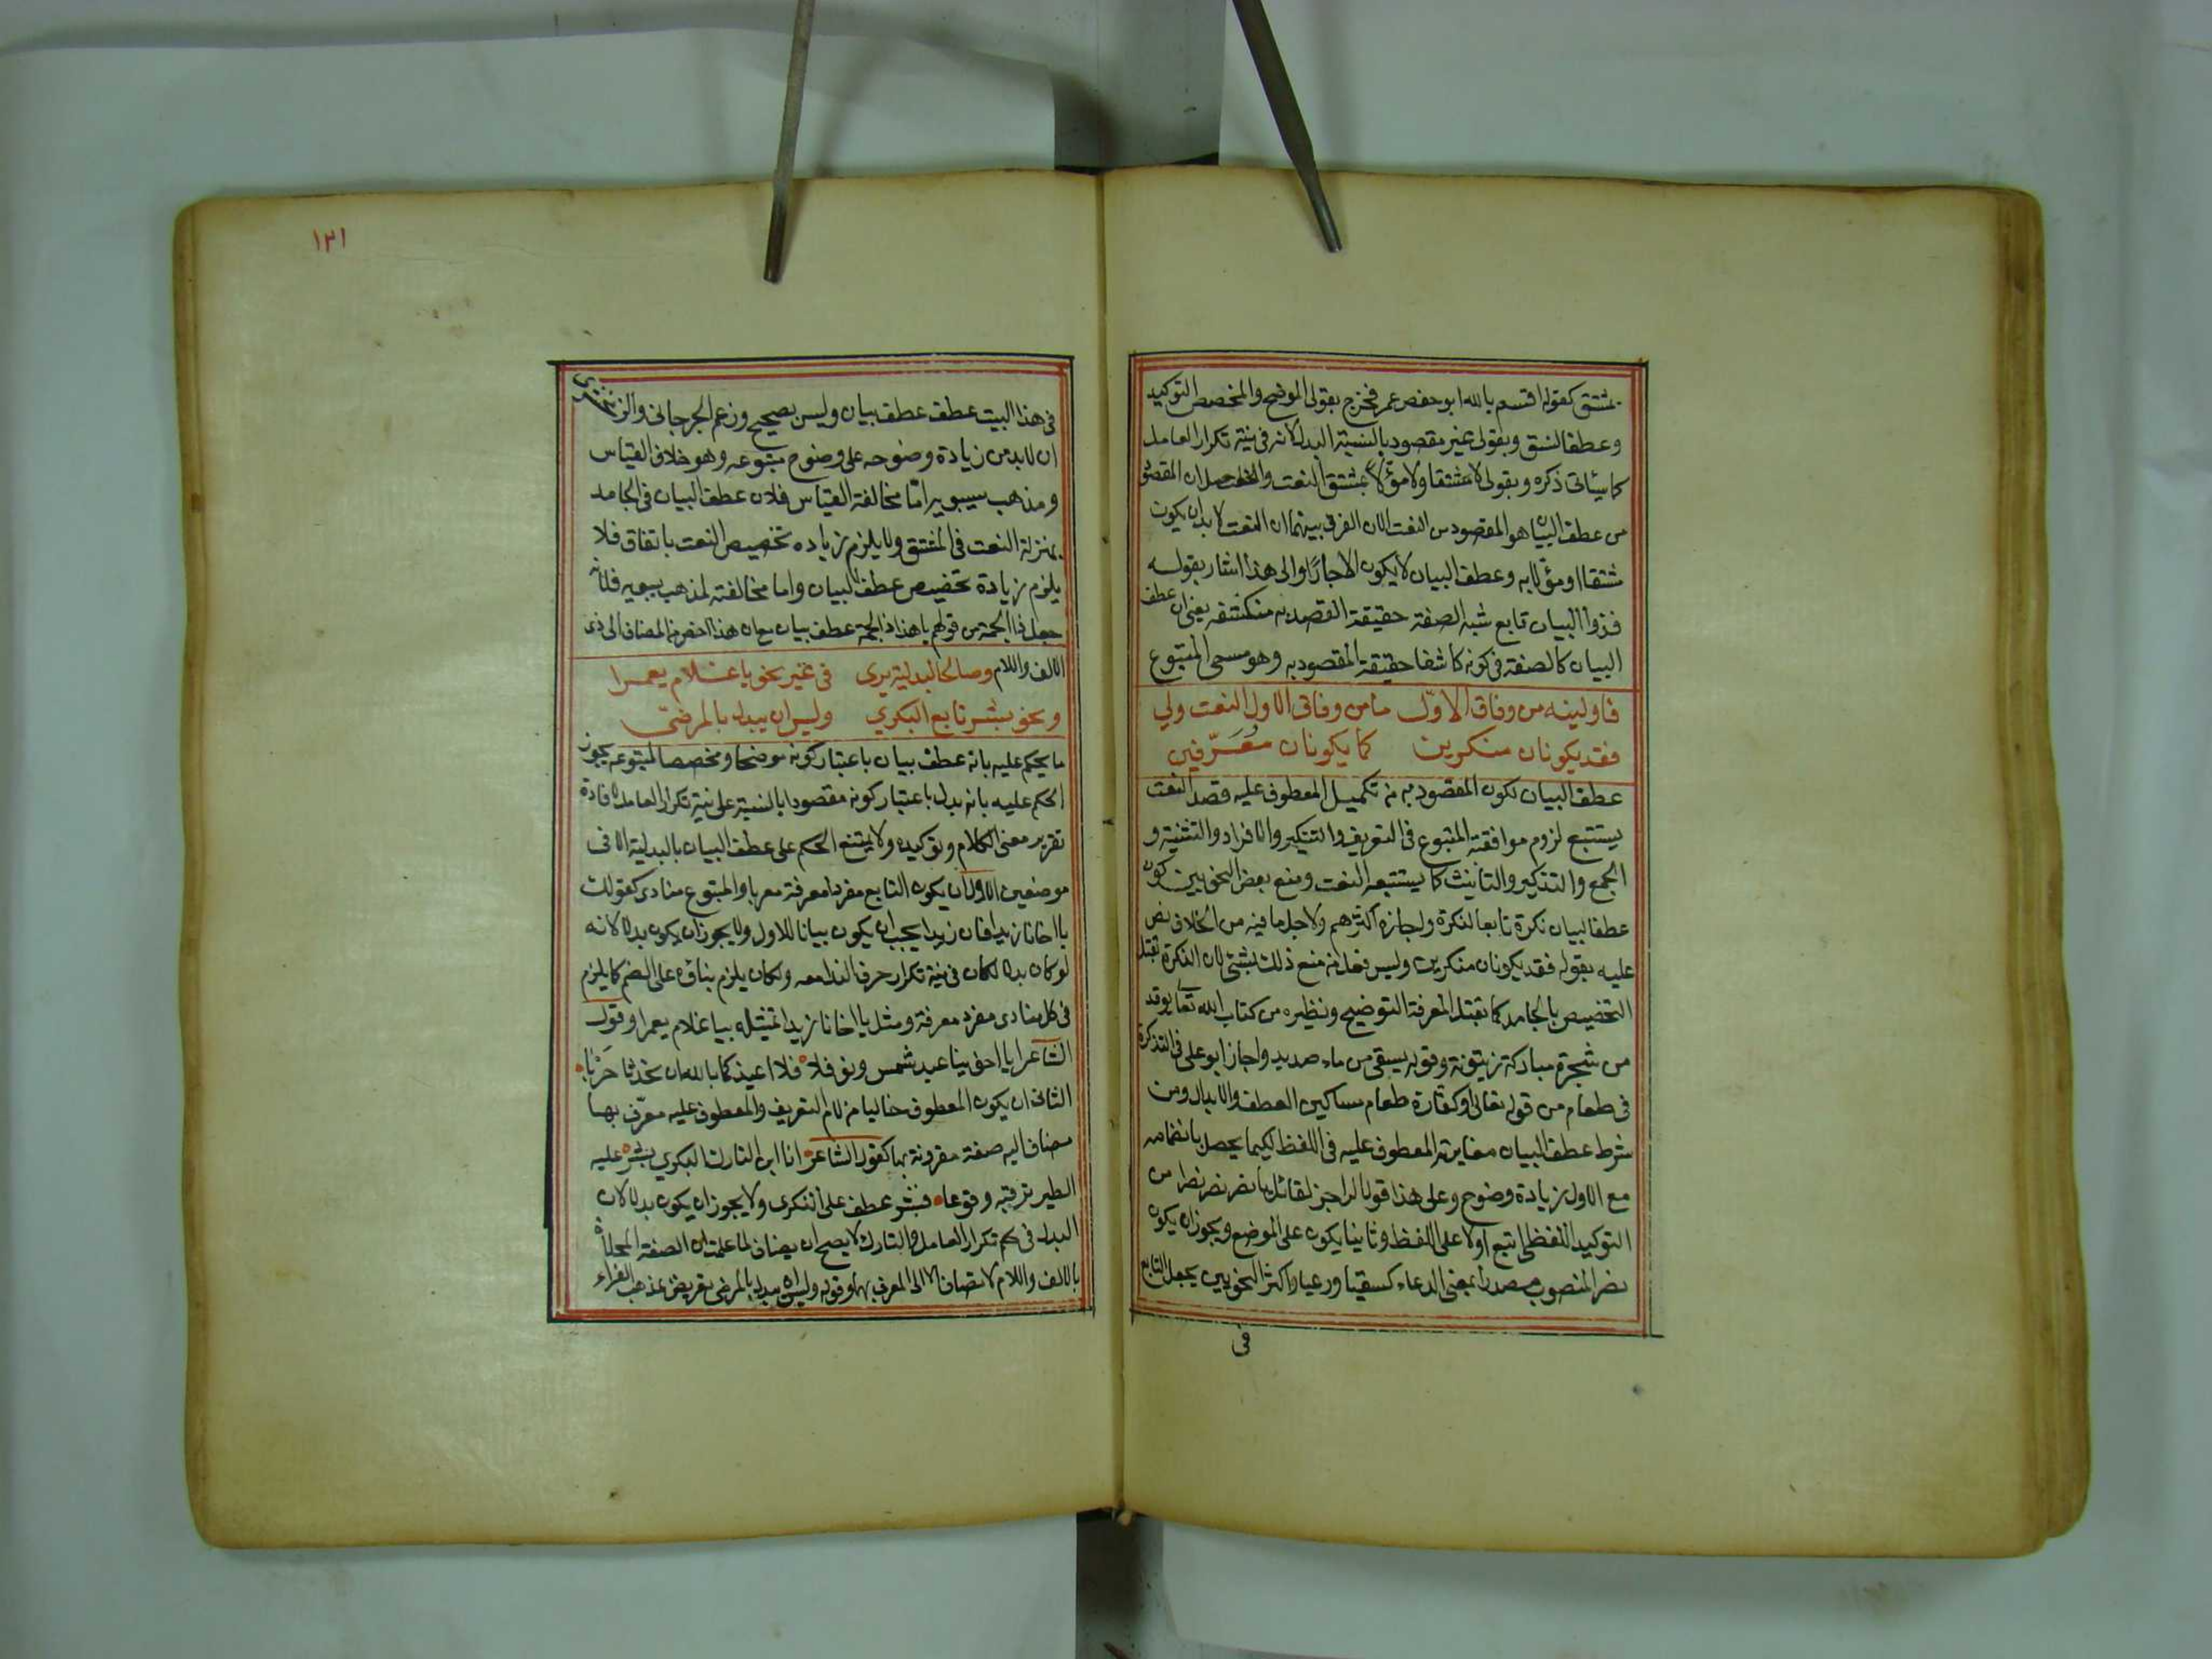 بمشتق كقوله اقسم بالله ابو حفص عمر فخرج بقولى الموضح والمخصص التوكيد
وعطف النسق وبقولى غير مقصود بالنسبة البدل لانه فى نية تكرار العامل
كما سيأتى ذكره وبقولى لا مشتقا ولا مؤلا بمشتق النعت والحاصل ان المقصود
من عطف البيان هو المقصود من النعت الا ان الفرق بينهما ان النعت لا بد ان يكون
مشتقا او مؤلا به وعطف البيان لا يكون الا جامدا والى هذا اشار بقوله
فذوا البيان تابع شبه الصفة حقيقة القصد به منكشفه يعنى ان عطف
البيان كالصفة فى كونه كاشفا حقيقة المقصود به وهو مسمى المتبوع
فاولينه من وفاق الاول ما من وفاق الاول النعت ولي
فقد يكونان منكرين كما يكونان معرّفين
عطف البيان لكون المقصود به من تكميل المعطوف عليه قصد النعت
يستتبع لزوم موافقة المتبوع فى التعريف والتنكير والافراد والتثنية و
الجمع والتذكير والتانيث كما يستتبعه النعت ومنع بعض النحويين كون
عطف البيان نكرة تابعا لنكرة واجازه اكثرهم ولاجل ما فيه من الخلاف نص
عليه بقوله فقد يكونان منكرين وليس قول من منع ذلك بشئ لان النكرة تقبل
التخصيص بالجامد كما تقبل المعرفة التوضيح ونظيره من كتاب الله تعا يوقد
من شجرة مباركة زيتونة وقوله يسقى من ماء صديد واجاز ابو على فى التذكرة
فى طعام من قوله تعالى او كفارة طعام مساكين العطف والابدال ومن
شرط عطف البيان مغايرته المعطوف عليه فى اللفظ لكيما يحصل بانضمامه
مع الاول زيادة وضوح وعلى هذا قول الراجز لقائل يا نصر نصر نصرا من
التوكيد اللفظى اتبع اولا على اللفظ وثانيا يكون على الموضع ويجوز ان يكون
نصر المنصوب مصدرا بمعنى الدعاء كسقيا ورعيا واكثر النحويين يجعل التابع
فى
١٢١
فى هذا البيت عطف عطف بيان وليس بصحيح وزعم الجرجانى والزمخشرى
ان لا بد من زيادة وضوحه على وضوح متبوعه وهو خلاف القياس
ومذهب سيبويه اما مخالفة القياس فلان عطف البيان فى الجامد
بمنزلة النعت فى المشتق ولا يلزم زيادة تخصيص النعت باتفاق فلا
يلزم زيادة تخصيص عطف البيان واما مخالفته لمذهب سيبويه فلانه
جعل ذا الجمة من قولهم يا هذا ذا الجمة عطف بيان مع ان هذا اخص من المضاف الى ذى
الالف واللام وصالحا لبدلية يرى فى غير نحو يا غلام يعمرا
ونحو بشر تابع البكري وليس ان يبدل بالمرضىّ
ما يحكم عليه بانه عطف بيان باعتبار كونه موضحا ومخصصا لمتبوعه يجوز
الحكم عليه بانه بدل باعتبار كونه مقصودا بالنسبة على نية تكرار العامل لافادة
تقرير معنى الكلام وتوكيده ولا يمتنع الحكم على عطف البيان بالبدلية الا فى
موضعين الاول ان يكون التابع مفردا معرفة معربا والمتبوع منادى كقولك
يا اخانا زيدا فان زيدا يجب ان يكون بيانا للاول ولا يجوز ان يكون بدلا لانه
لو كان بدلا لكان فى نية تكرار حرف الندا معه ولكان يلزم بناؤه على الضم كما يلزم
فى كل منادى مفرد معرفة ومثل يا اخانا زيدا تمثيله بيا غلام يعمرا وقول
الشاعر ايا اخوينا عبد شمس ونوفلا فلا اعيذكما بالله ان تحدثا حربا
الثانى ان يكون المعطوف خاليا من لام التعريف والمعطوف عليه معرّف بها
مضاف اليه صفة مقرونة بها كقول الشاعر انا ابن التارك البكري بشر عليه
الطير ترقبه وقوعا فبشر عطف على البكرى ولا يجوز ان يكون بدلا لان
البدل فى حكم تكرار العامل والتارك لا يصح ان يضاف لما علمت ان الصفة المحلاة
بالالف واللام لا تضاف الا الى المعرف بها وقوله وليس ان يبدل بالمرضى تعريض بمذهب الفراء